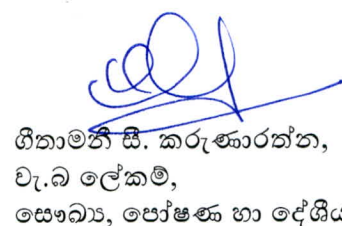 ගීතාමනී සී. කරුණාරත්න,
වැ.බ ලේකම්,
සෞඛ්‍ය, පෝෂණ හා දේශීය